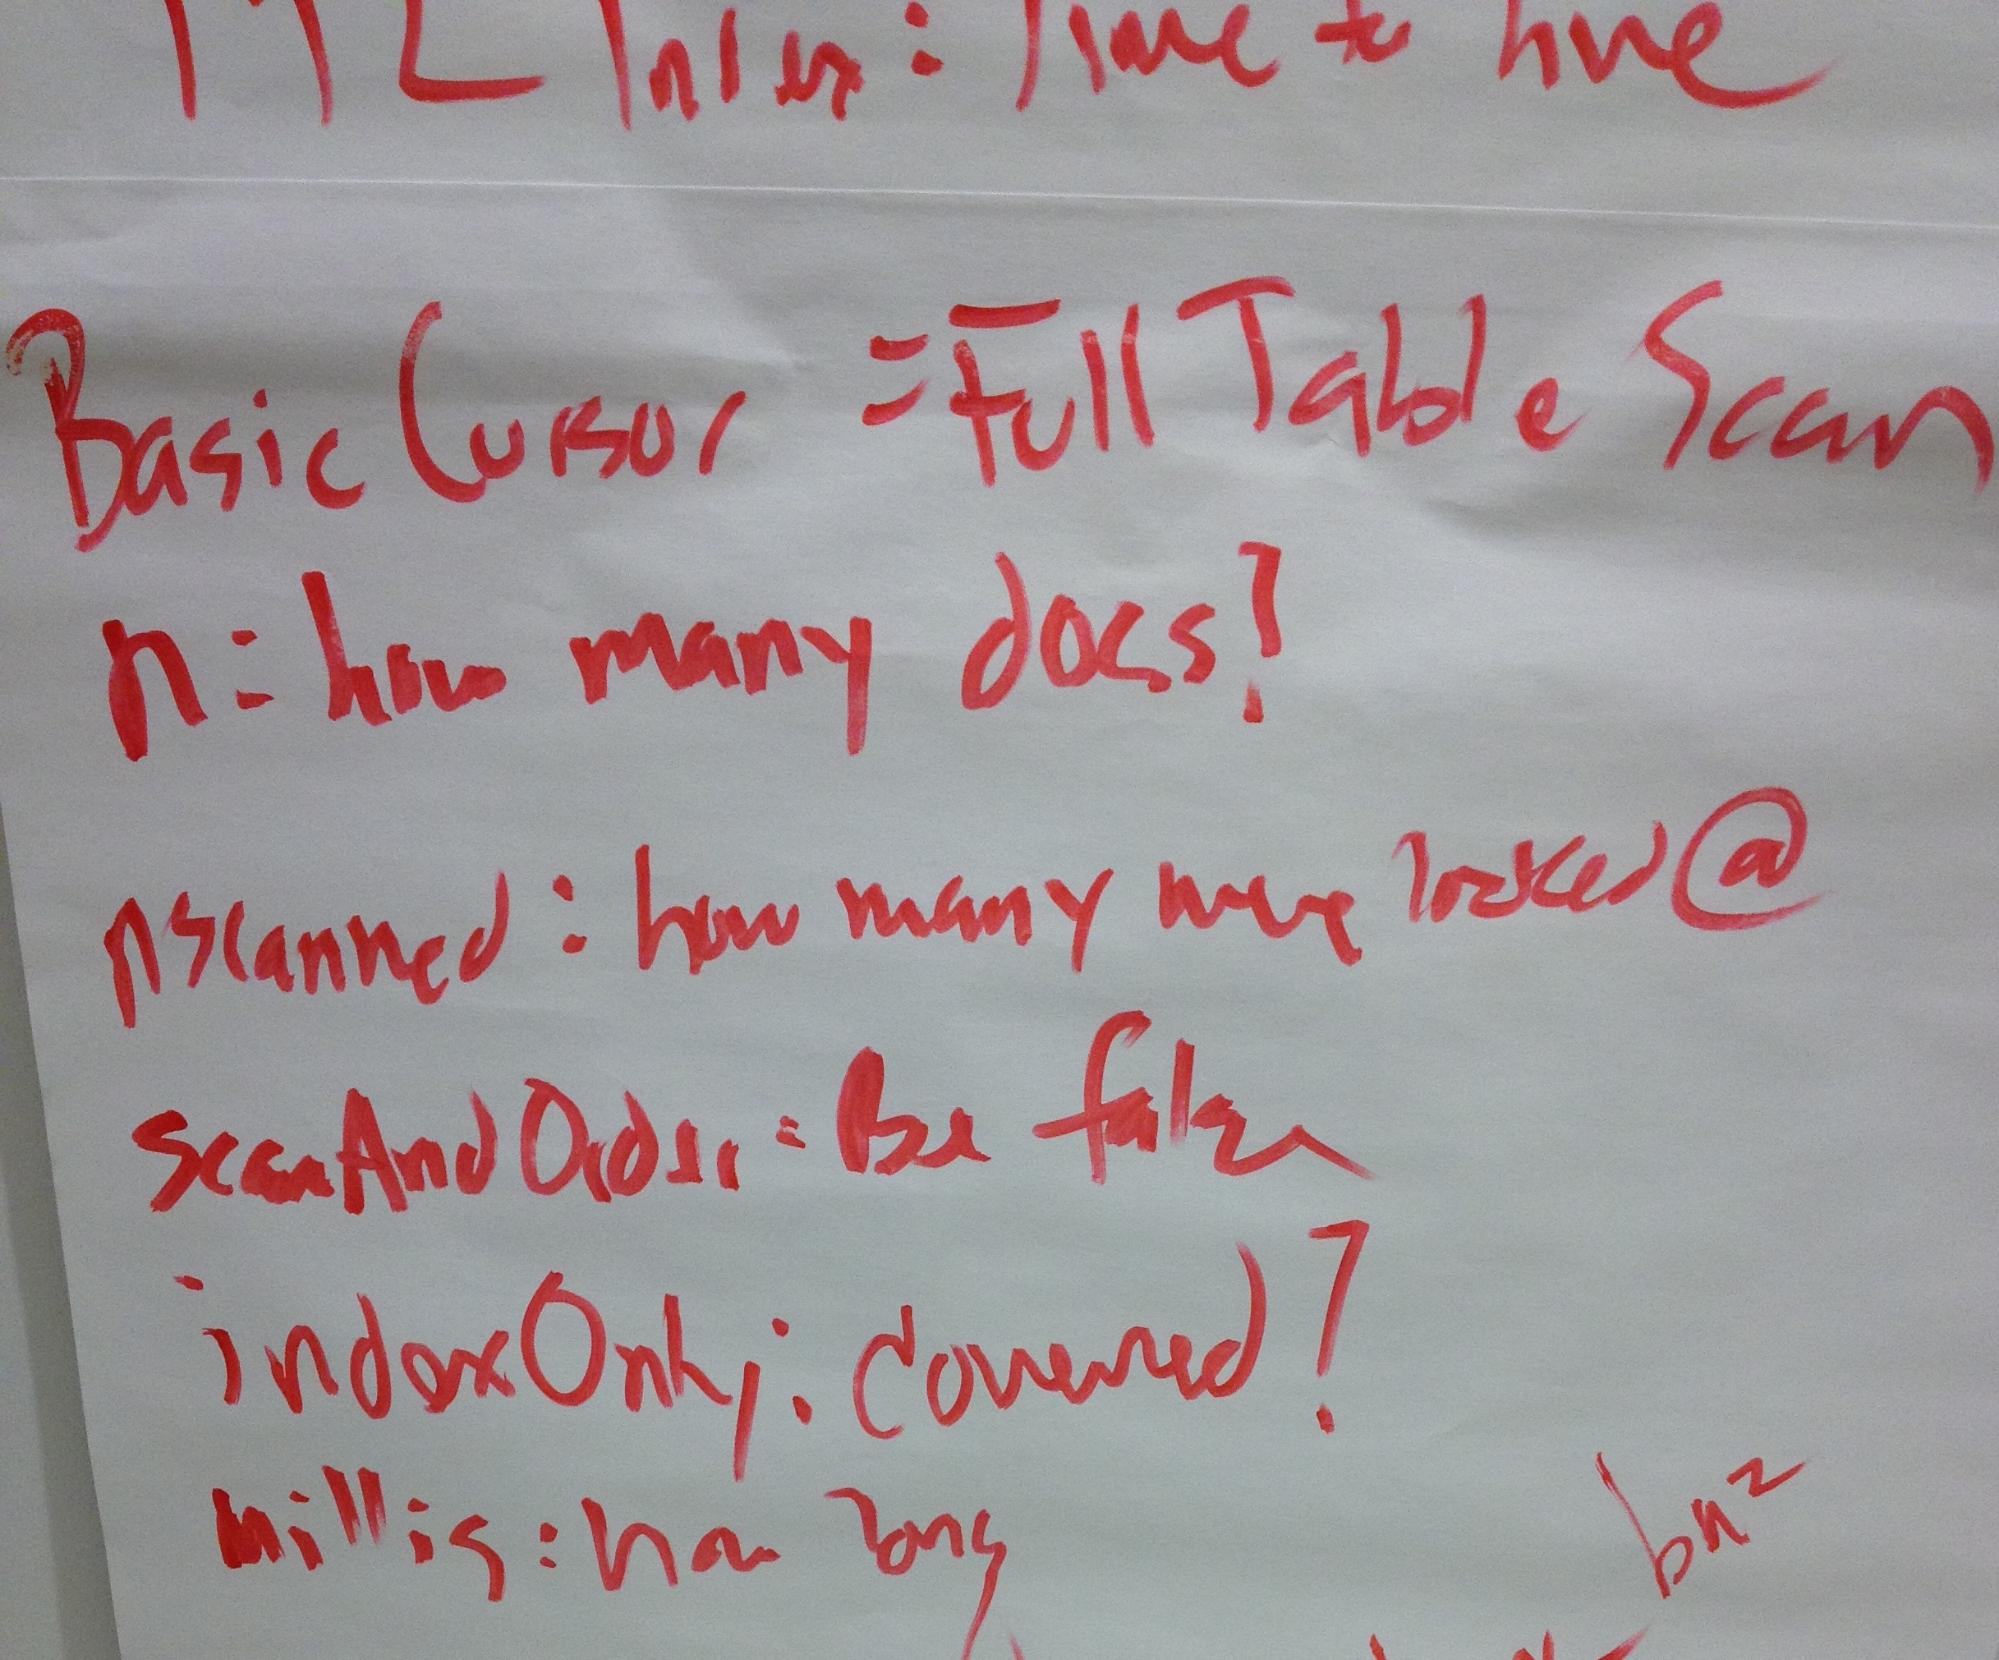 TTL Index: Time to live
Basic Cursor = Full Table Scan
n: how many docs?
nscanned: how many were looked @
scanAndOrder: Be false
indexOnly: covered?
millis: how long
bn²